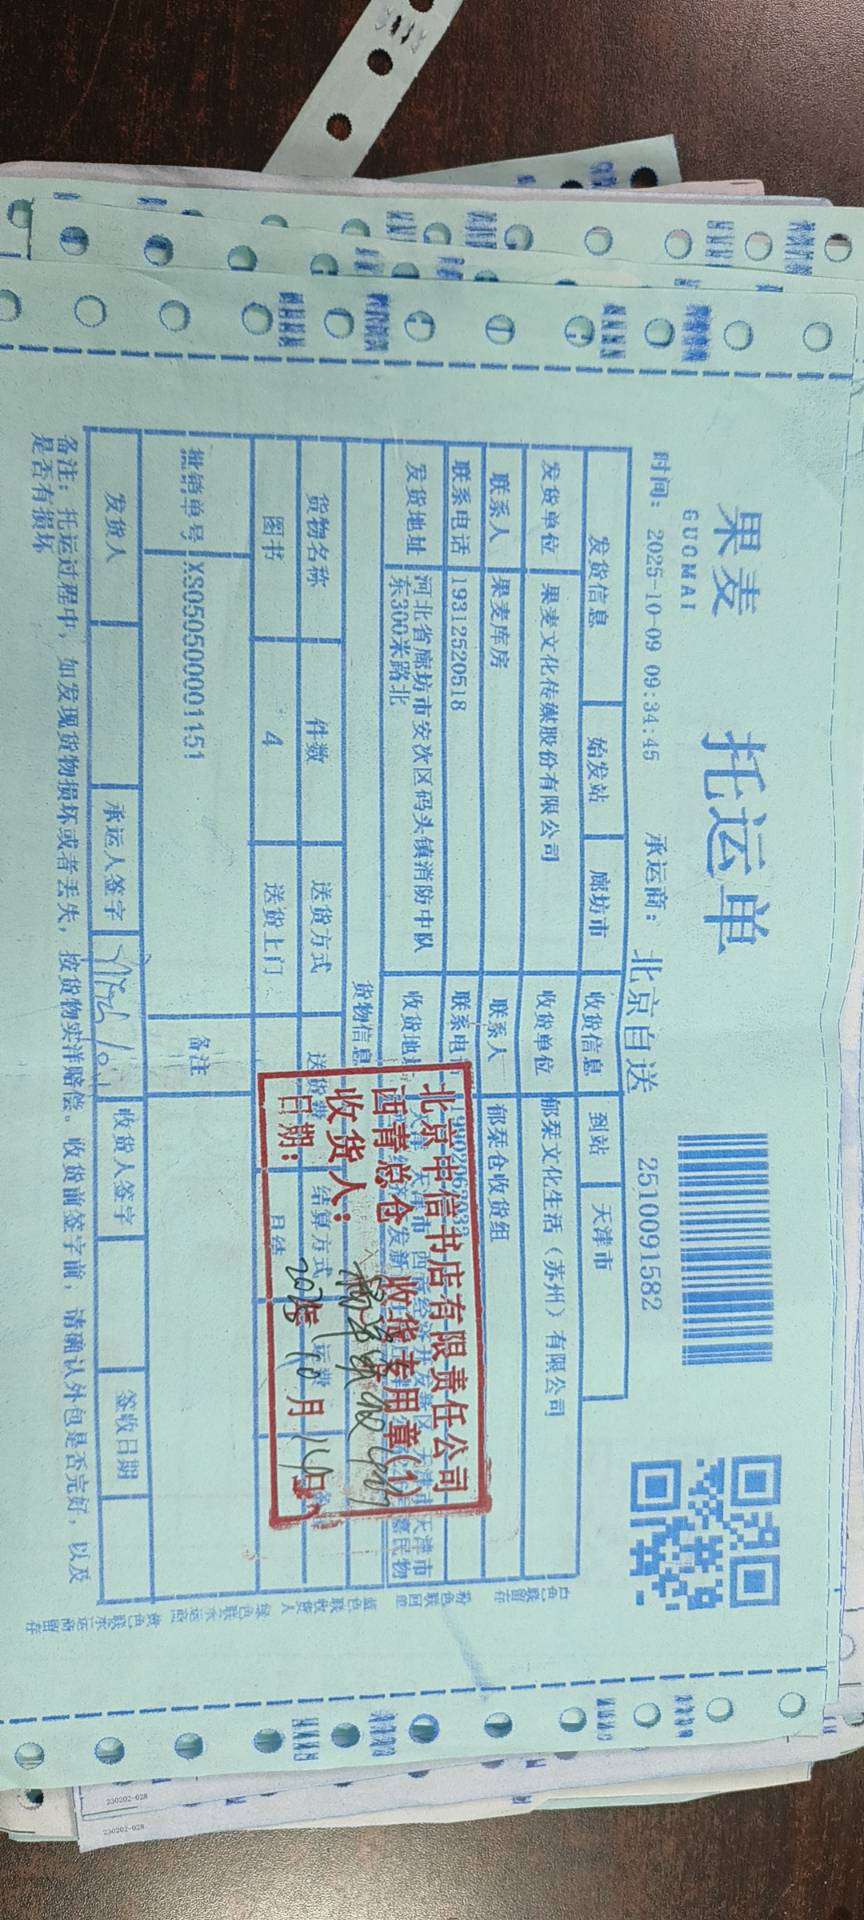 果麦
GUOMAI
托运单
2510091582
时间: 2025-10-09 09:34:45 承运商: 北京自送
发货信息 始发站 廊坊市 收货信息 到站 天津市
发货单位 果麦文化传媒股份有限公司 收货单位 郁栞文化生活（苏州）有限公司
联系人 果麦库房 联系人 郁栞仓收货组
联系电话 19312520518 联系电
发货地址 河北省廊坊市安次区码头镇消防中队东300米路北 收货地
货物信息
货物名称 件数 送货方式 送货费 结算方式 运费
图书 4 送货上门 日结
撤销单号 XS050500001151 备注
发货人 承运人签字 收货人签字 签收日期
备注: 托运过程中, 如发现货物损坏或者丢失, 按货物实洋赔偿。收货前签字前, 请确认外包是否完好, 以及
是否有损坏
北京中信书店有限责任公司
西青总仓 收货专用章(1)
收货人:
日期: 2025年10月14日
白色联留存 粉色联回单 蓝色联收货人 绿色联承运商 黄色联承运商留存
230202-028
230202-028